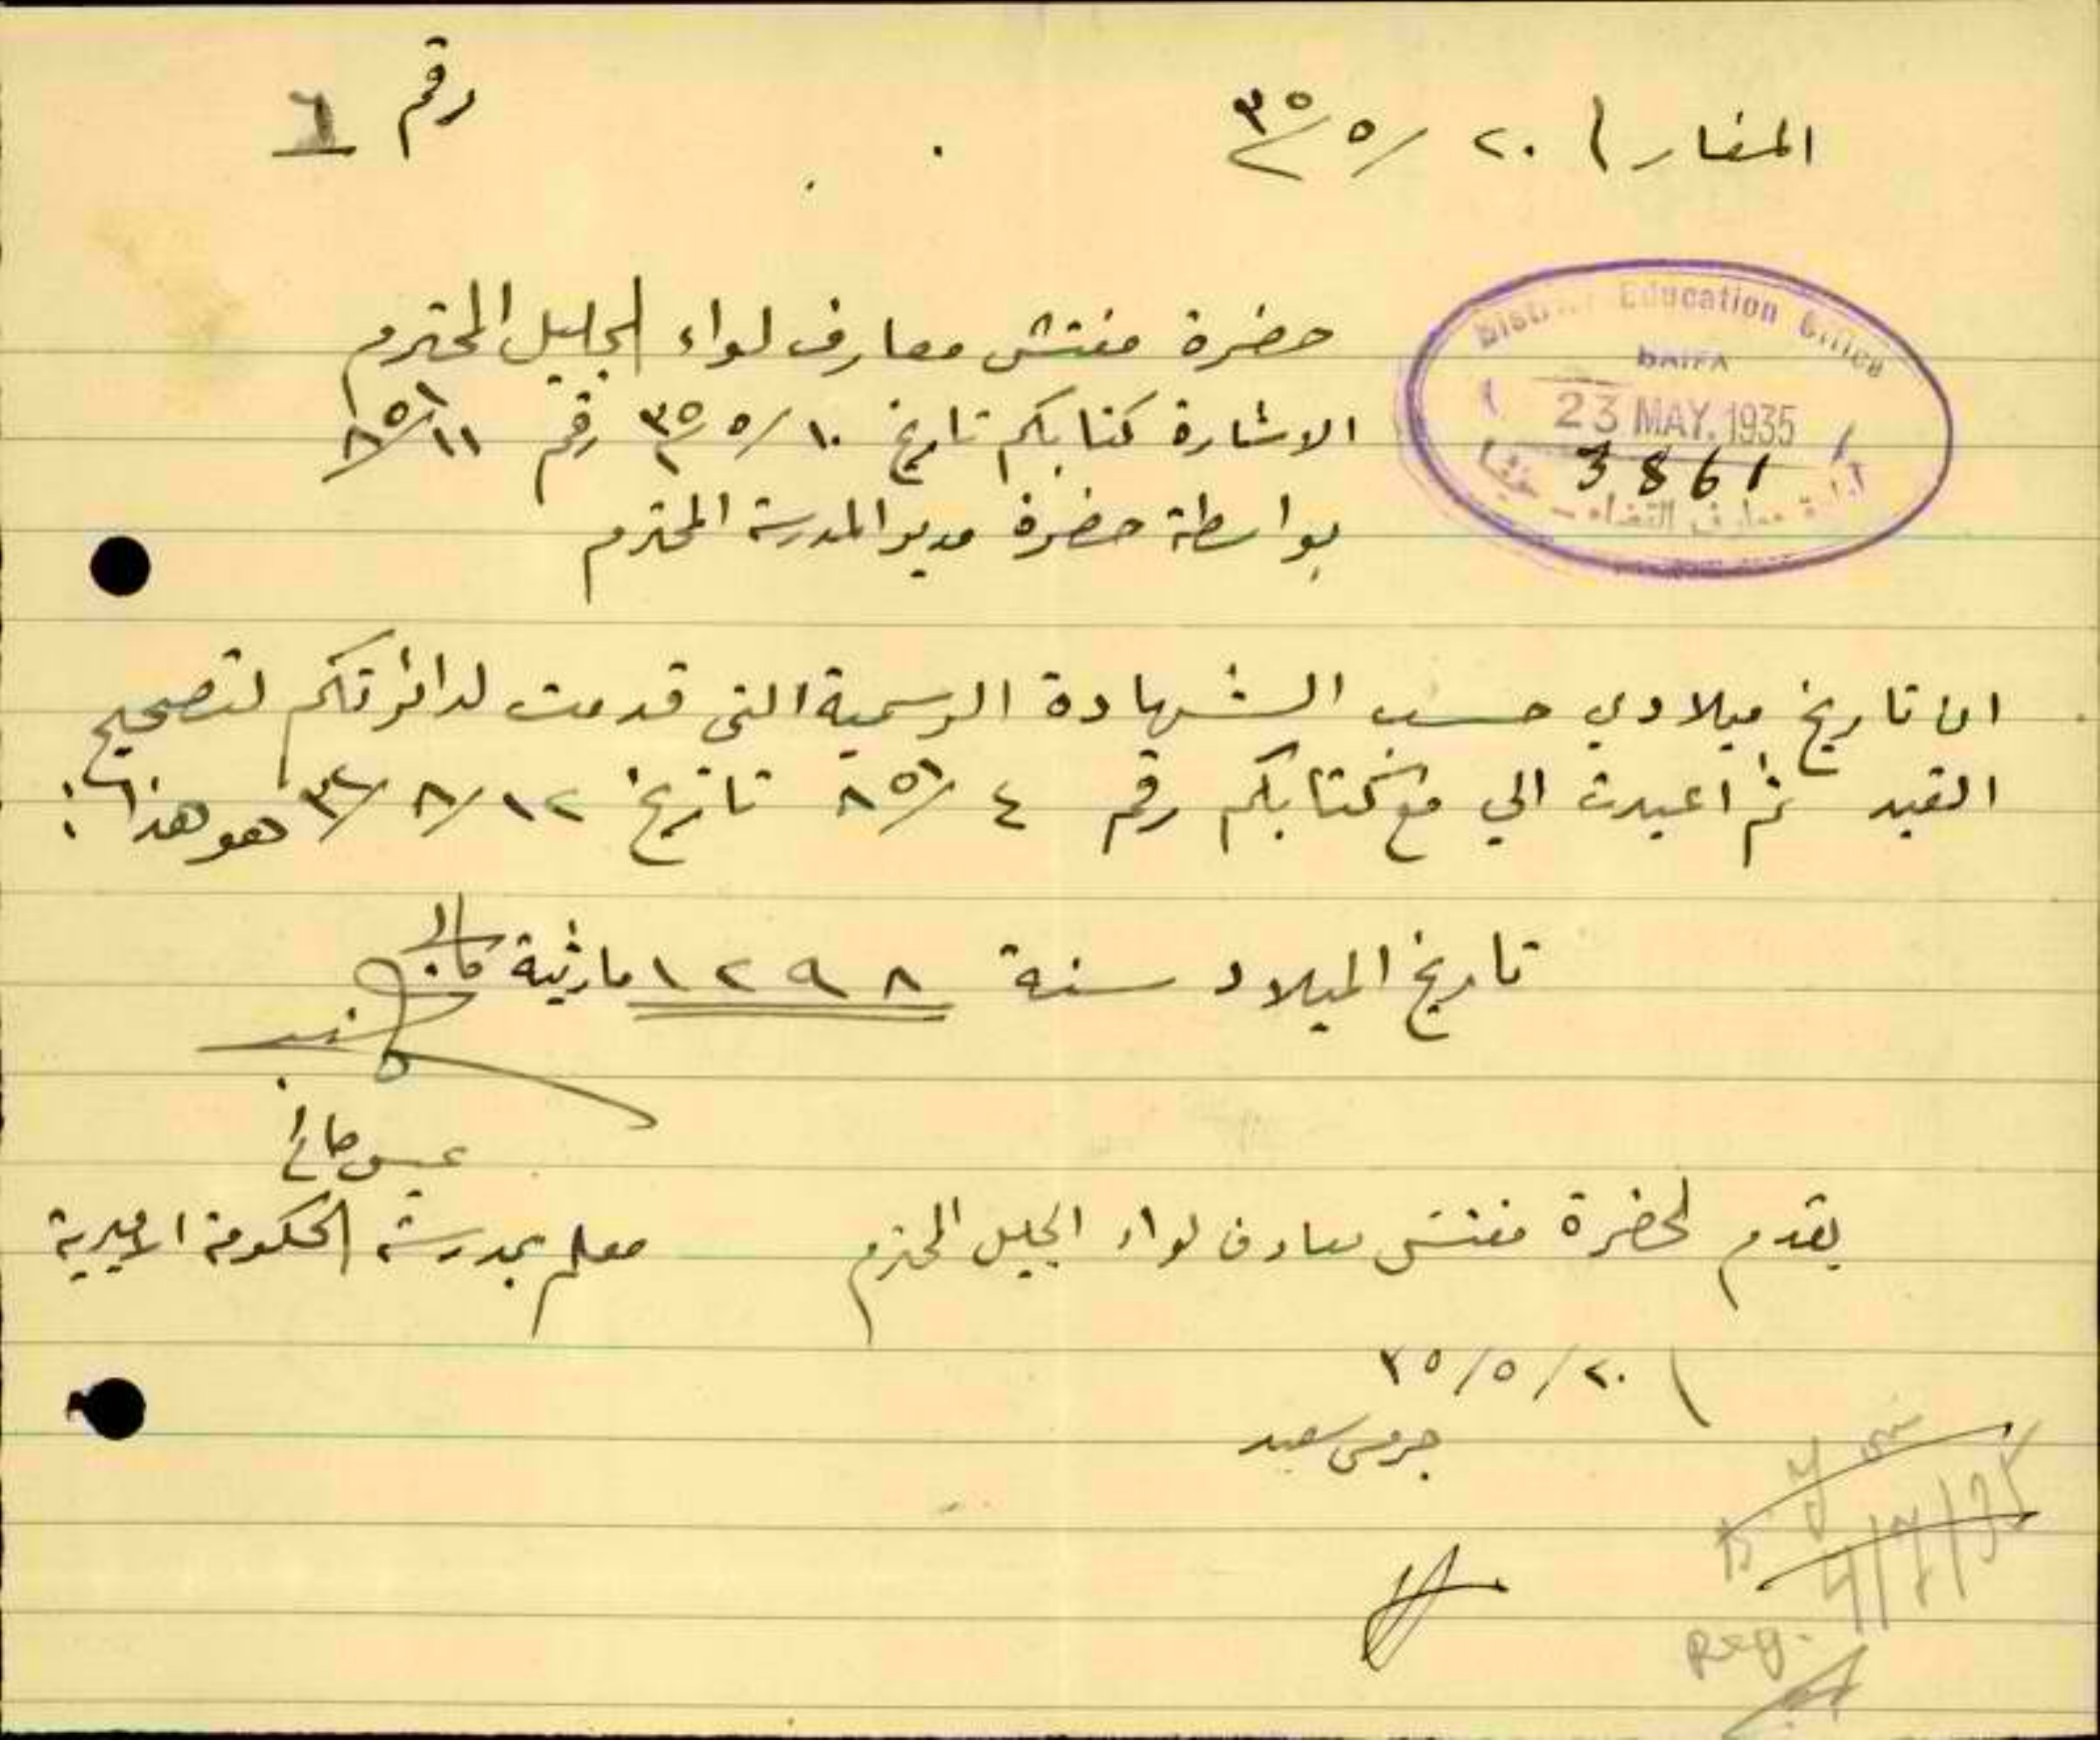 المغار ) ٢٠/٥/٣٥
رقم ٦
District Education Office
HAIFA
23 MAY. 1935
3861
حضرة مفتش معارف لواء الجليل المحترم
الاشارة كتابكم تاريخ ١٠/٥/٣٥ رقم ١١/٨٥١
بواسطة حضرة مدير المدرسة المحترم
ان تاريخ ميلادي حسب الشهادة الرسمية التي قدمت لدائرتكم لتصحيح
القيد ثم اعيدت الي مع كتابكم رقم ٤/٨٥١ تاريخ ١٢/٨/٣٢ هو هذا :
تاريخ الميلاد سنة ١٢٩٨ مارثية
معلم بمدرسة الحكومة الاميرية
يقدم لحضرة مفتش معارف لواء الجليل المحترم
٢٠/٥/٣٥
جريس سعيد
4/7/35
Reg.